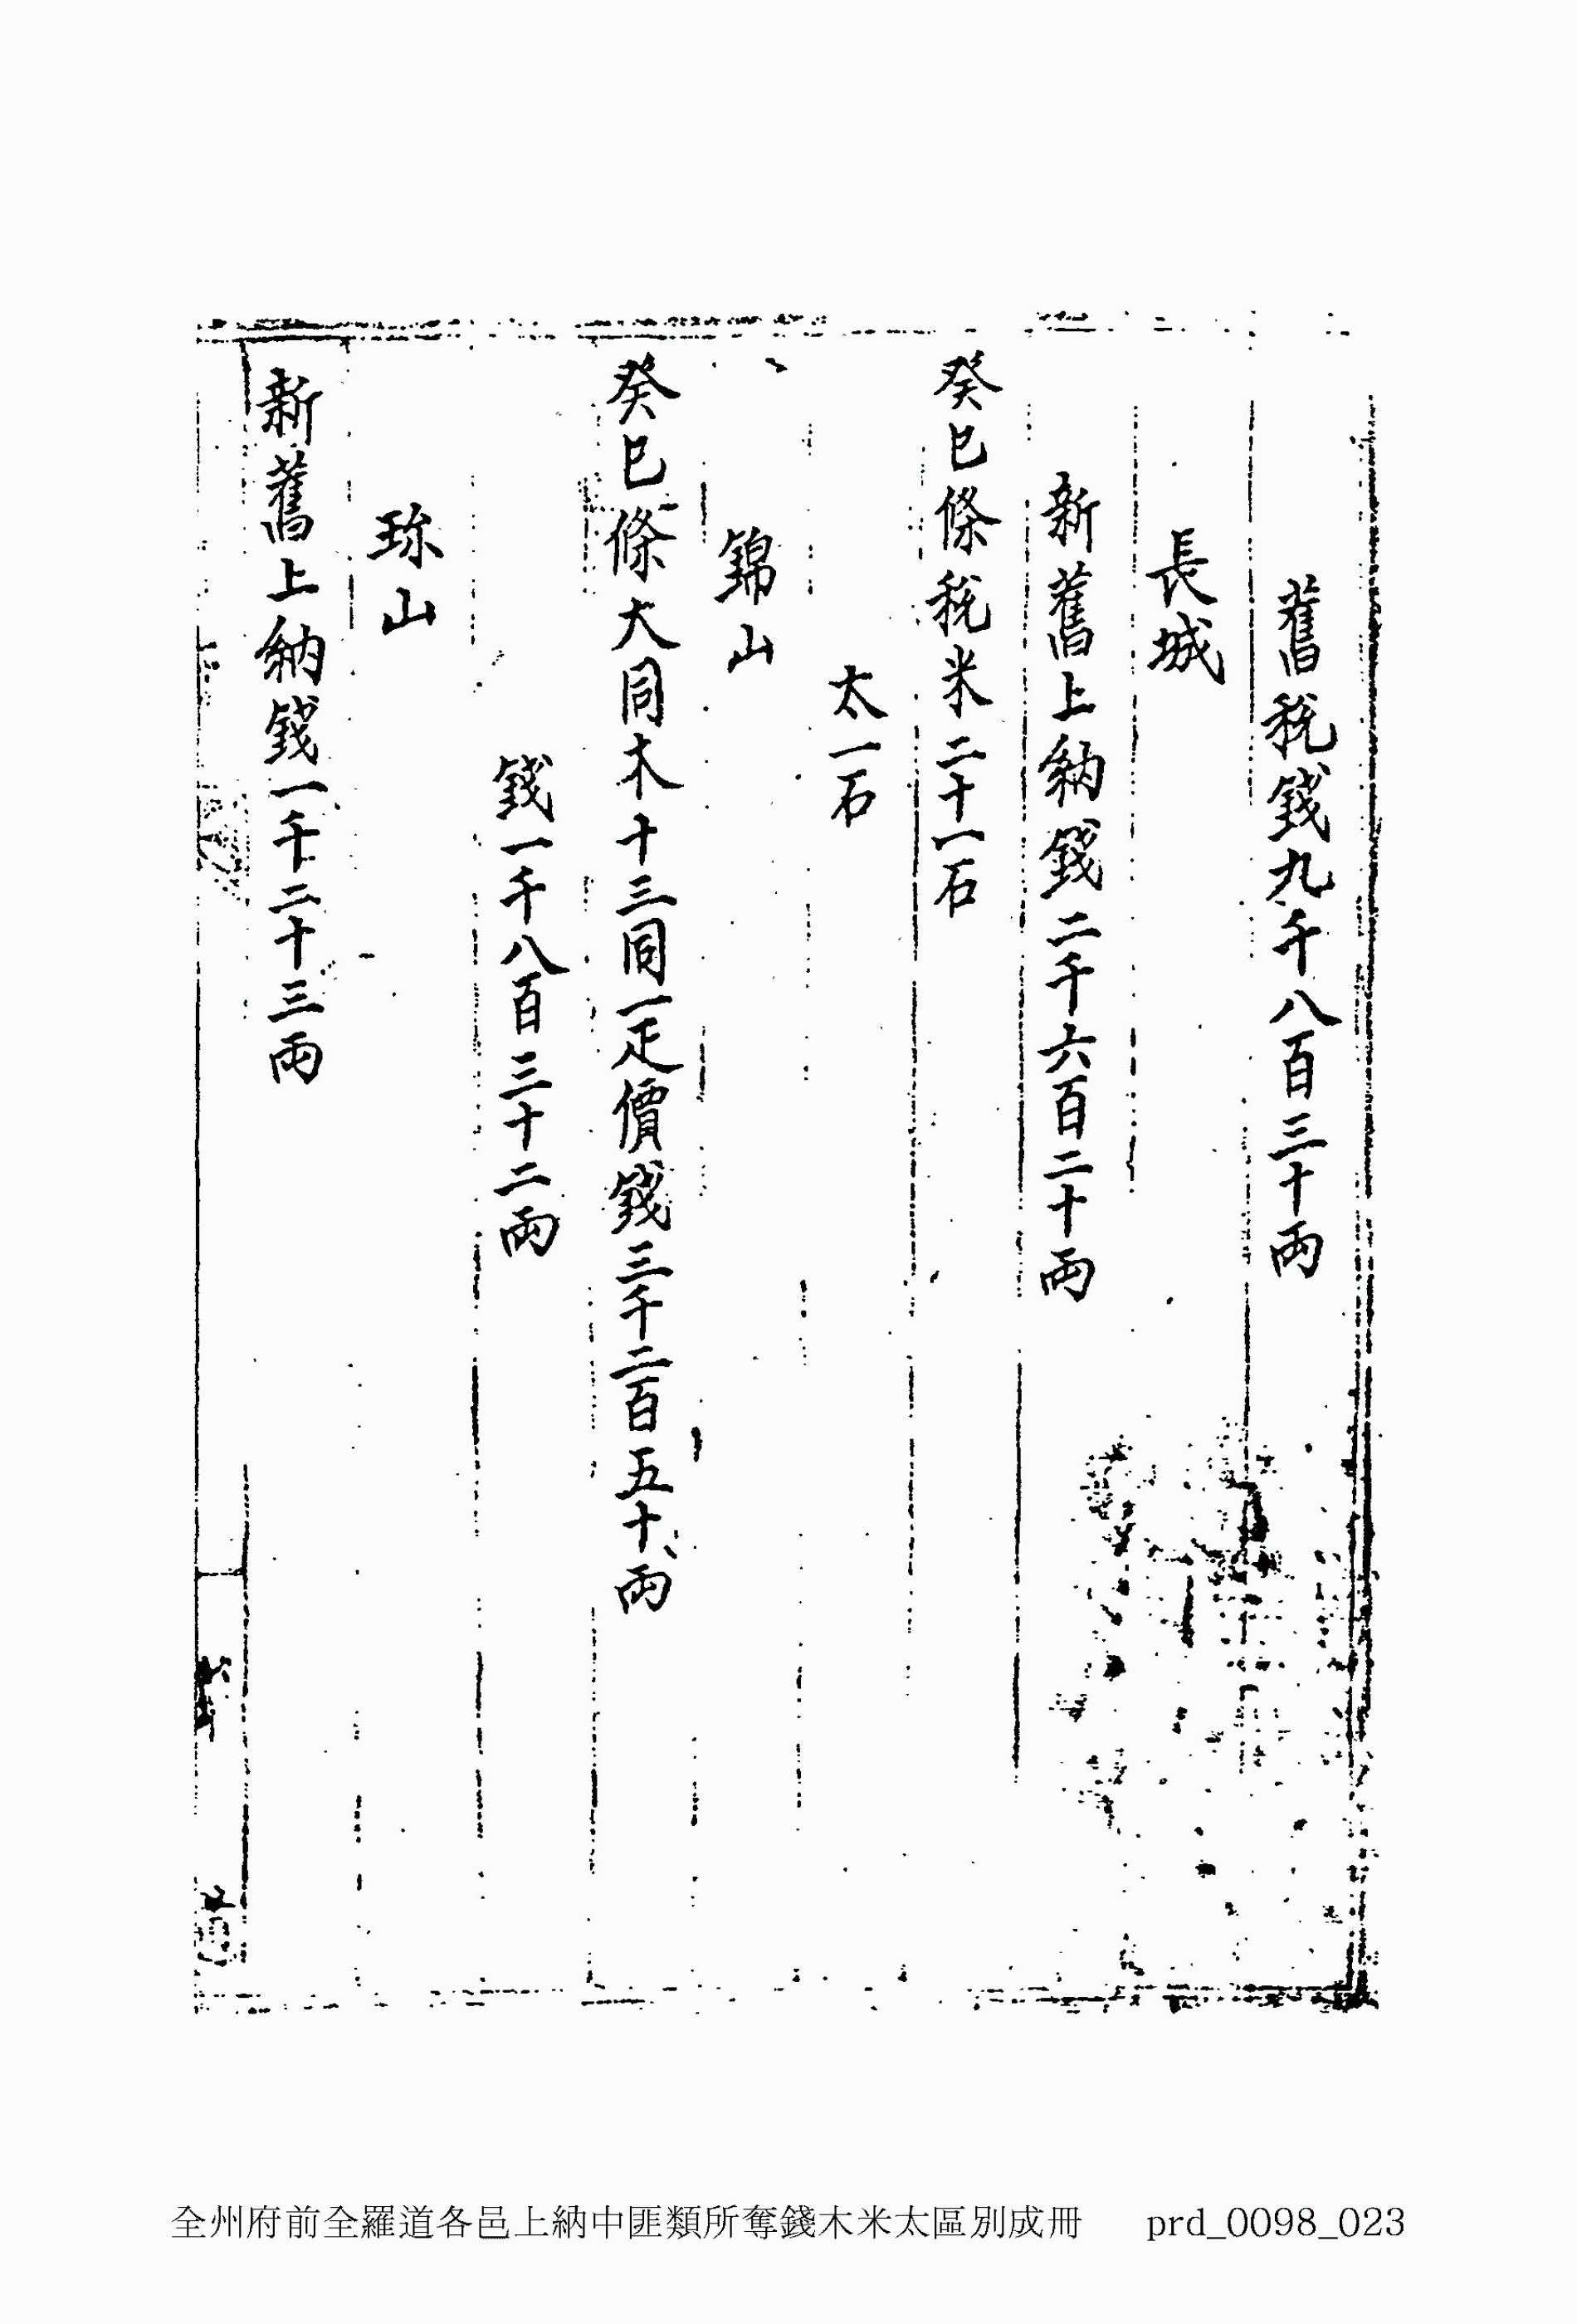 舊税錢九千八百三十両
長城
新舊上納錢二千六百二十両
癸巳條税米二十一石
太一石
錦山
癸巳條大同木十三同一疋價錢三千二百五十両
錢一千八百三十二両
珎山
新舊上納錢一千二十三両
全州府前全羅道各邑上納中匪類所奪錢木米太區別成冊 prd_0098_023